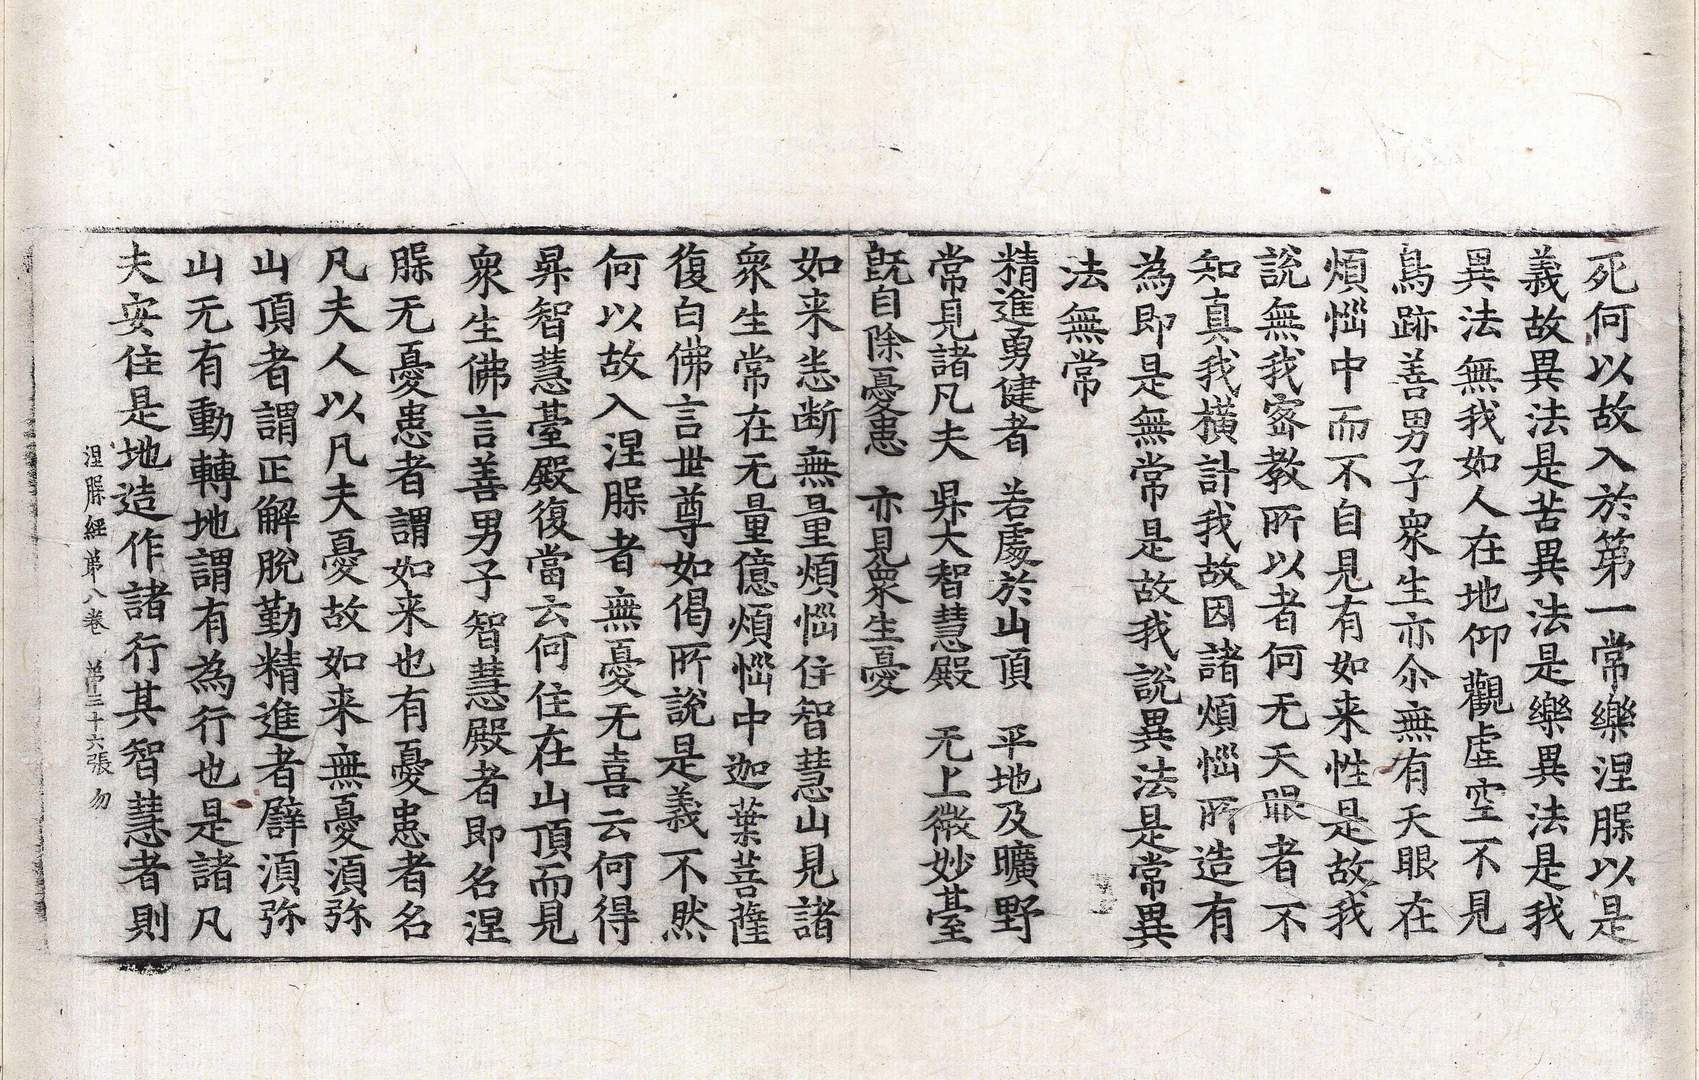 死何以故入於第一常樂涅槃以是
義故異法是苦異法是樂異法是我
異法無我如人在地仰觀虛空不見
鳥跡善男子衆生亦尒無有天眼在
煩惱中而不自見有如来性是故我
說無我密教所以者何无天眼者不
知真我橫計我故因諸煩惱所造有
為即是無常是故我說異法是常異
法無常
精進勇健者　若處於山頂　平地及曠野
常見諸凡夫　昇大智慧殿　无上微妙臺
旣自除憂患　亦見衆生憂
如来悉断無量煩惱住智慧山見諸
衆生常在无量億煩惱中迦葉菩薩
復白佛言世尊如偈所說是義不然
何以故入涅槃者無憂无喜云何得
昇智慧臺殿復當云何住在山頂而見
衆生佛言善男子智慧殿者即名涅
槃无憂患者謂如来也有憂患者名
凡夫人以凡夫憂故如来無憂須弥
山頂者謂正解脫勤精進者譬須弥
山无有動轉地謂有為行也是諸凡
夫安住是地造作諸行其智慧者則
涅槃經第八卷　第三十六張　勿